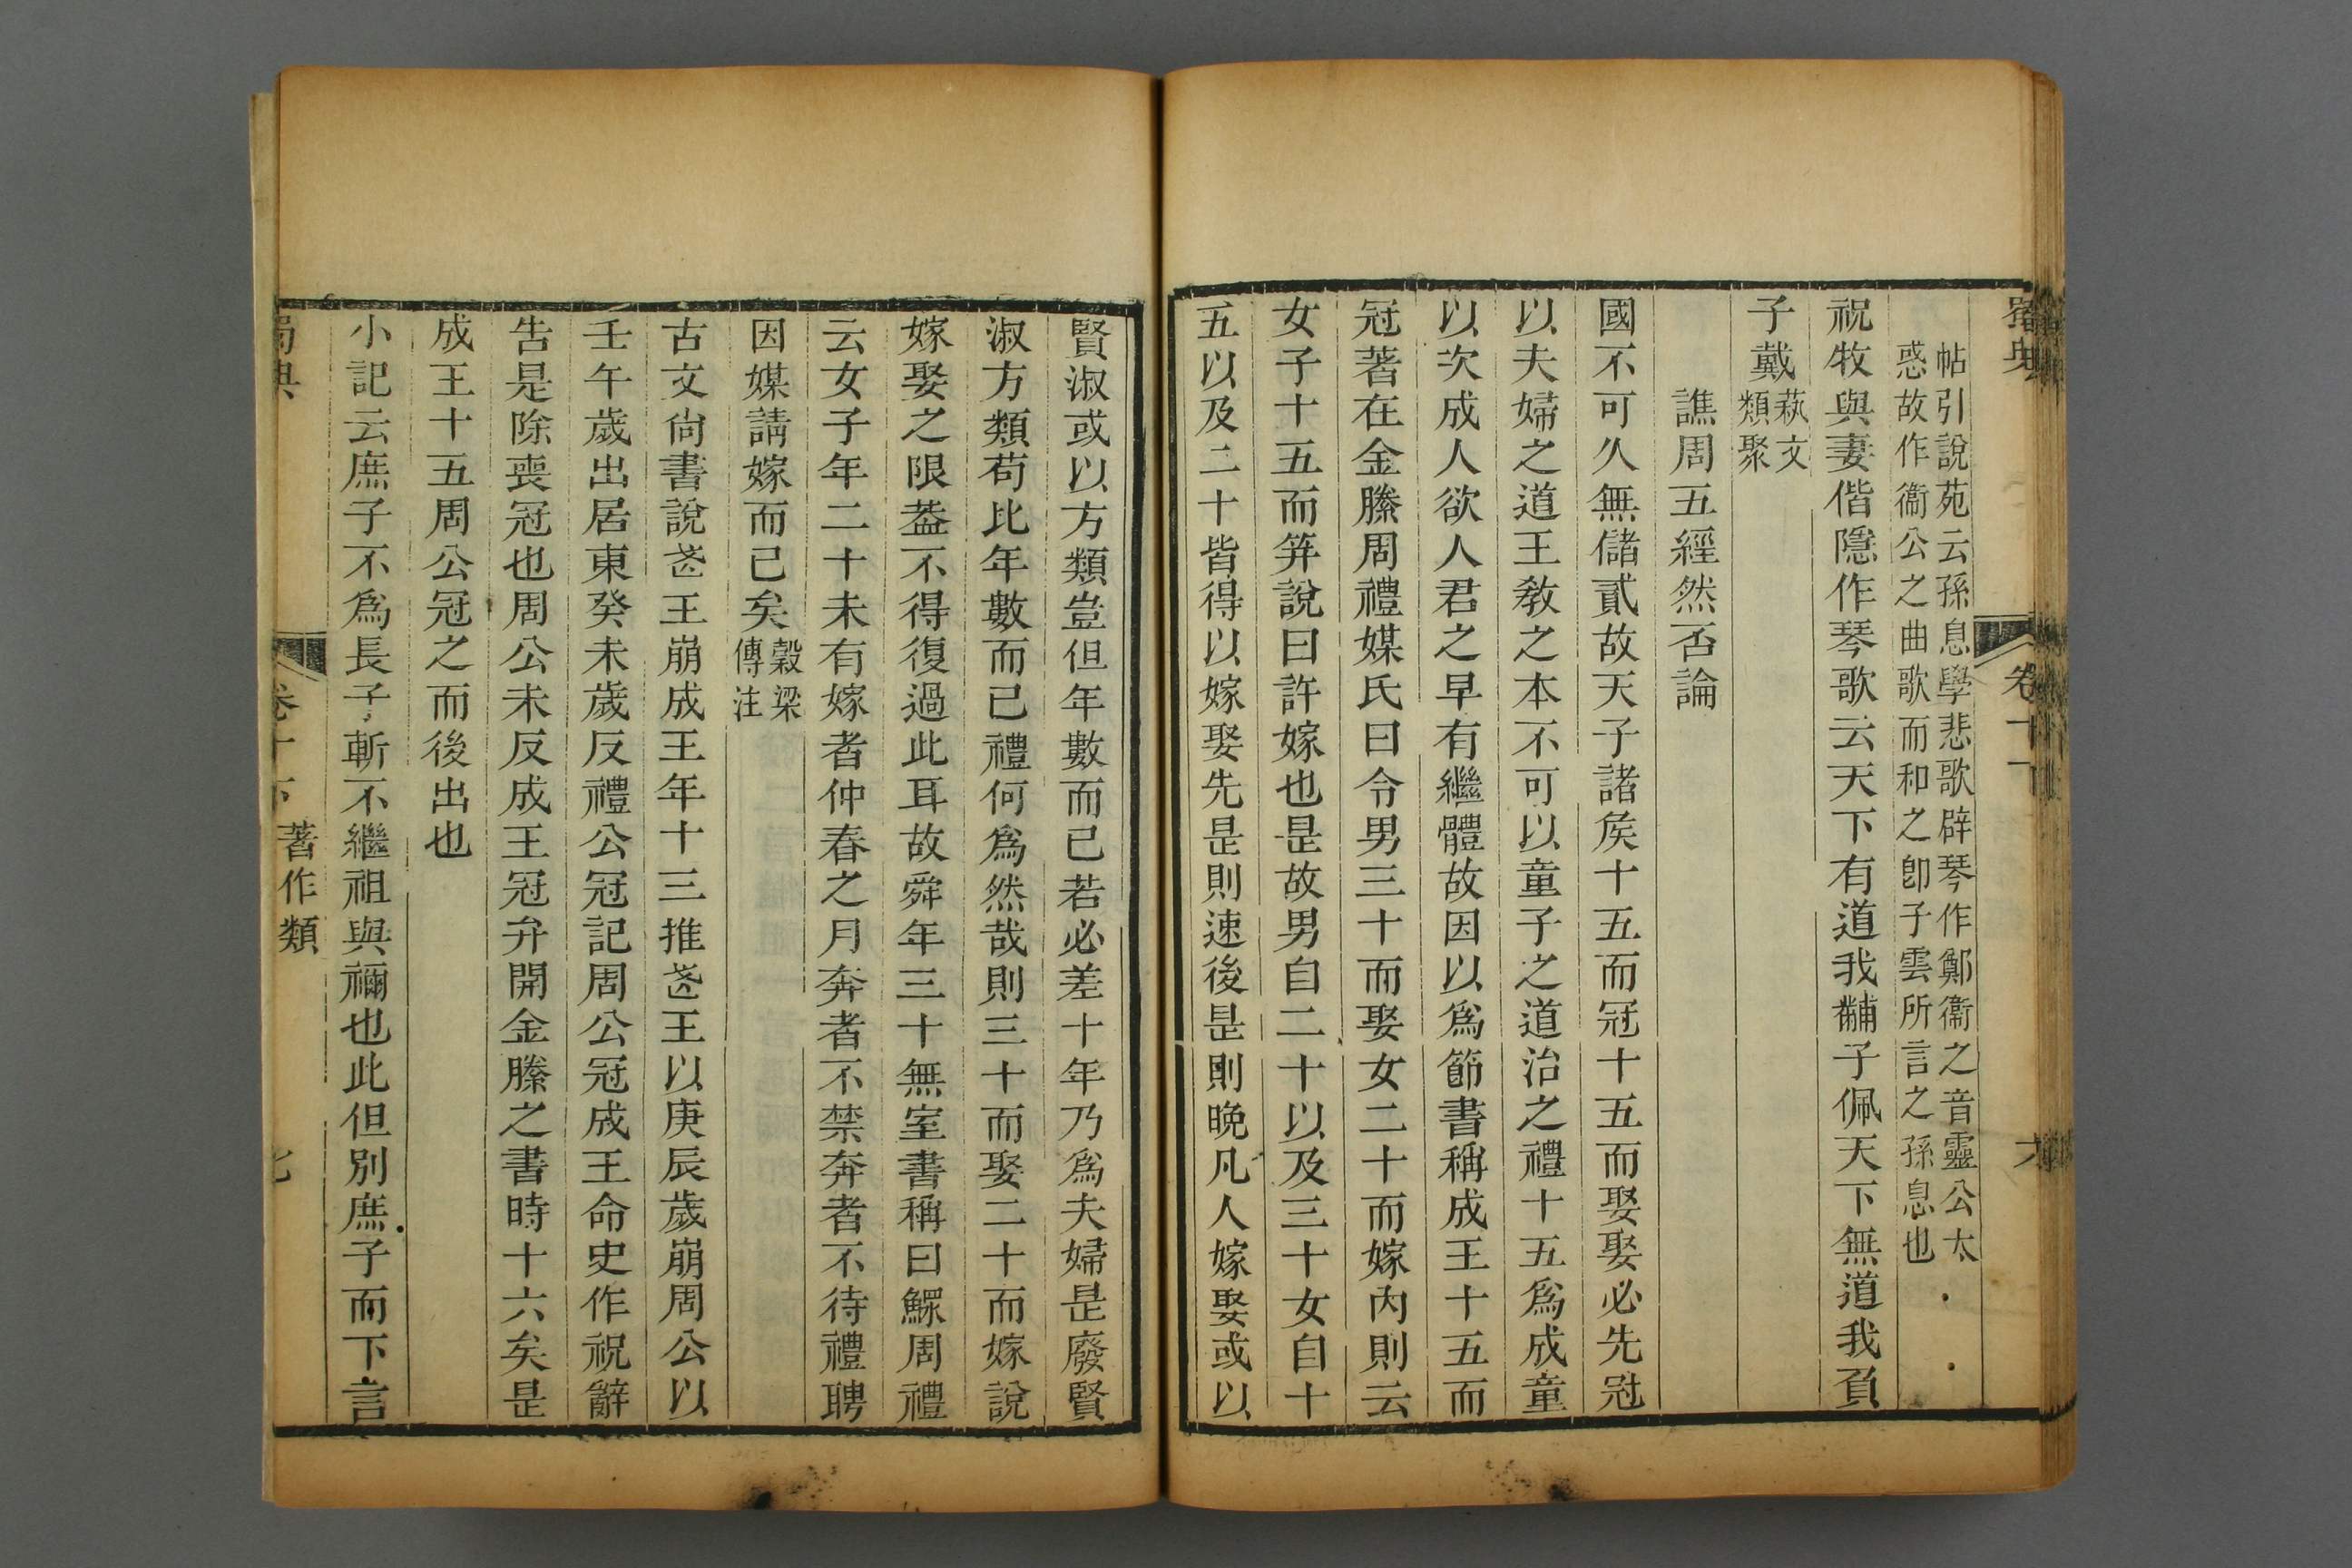 帖引說苑云孫息學悲歌辟琴作鄭衞之音靈公太
惑故作衞公之曲歌而和之卽子雲所言之孫息也
祝牧與妻偕隱作琴歌云天下有道我黼子佩天下無道我負
子戴萩文類聚
譙周五經然否論
國不可久無儲貳故天子諸矦十五而冠十五而娶娶必先冠
以夫婦之道王敎之本不可以童子之道治之禮十五爲成童
以次成人欲人君之早有繼體故因以爲節書稱成王十五而
冠著在金縢周禮媒氏曰令男三十而娶女二十而嫁內則云
女子十五而笄說曰許嫁也是故男自二十以及三十女自十
五以及二十皆得以嫁娶先是則速後是則晚凡人嫁娶或以
賢淑或以方類豈但年數而已若必差十年乃爲夫婦是廢賢
淑方類苟比年數而已禮何爲然哉則三十而娶二十而嫁說
嫁娶之限葢不得復過此耳故舜年三十無室書稱曰鰥周禮
云女子年二十未有嫁者仲春之月奔者不禁奔者不待禮聘
因媒請嫁而已矣穀梁傳注
古文尙書說武王崩成王年十三推武王以庚辰歲崩周公以
壬午歲出居東癸未歲反禮公冠記周公冠成王命史作祝辭
告是除喪冠也周公未反成王冠弁開金縢之書時十六矣是
成王十五周公冠之而後出也
小記云庶子不爲長子斬不繼祖與禰也此但別庶子而下言
著作類